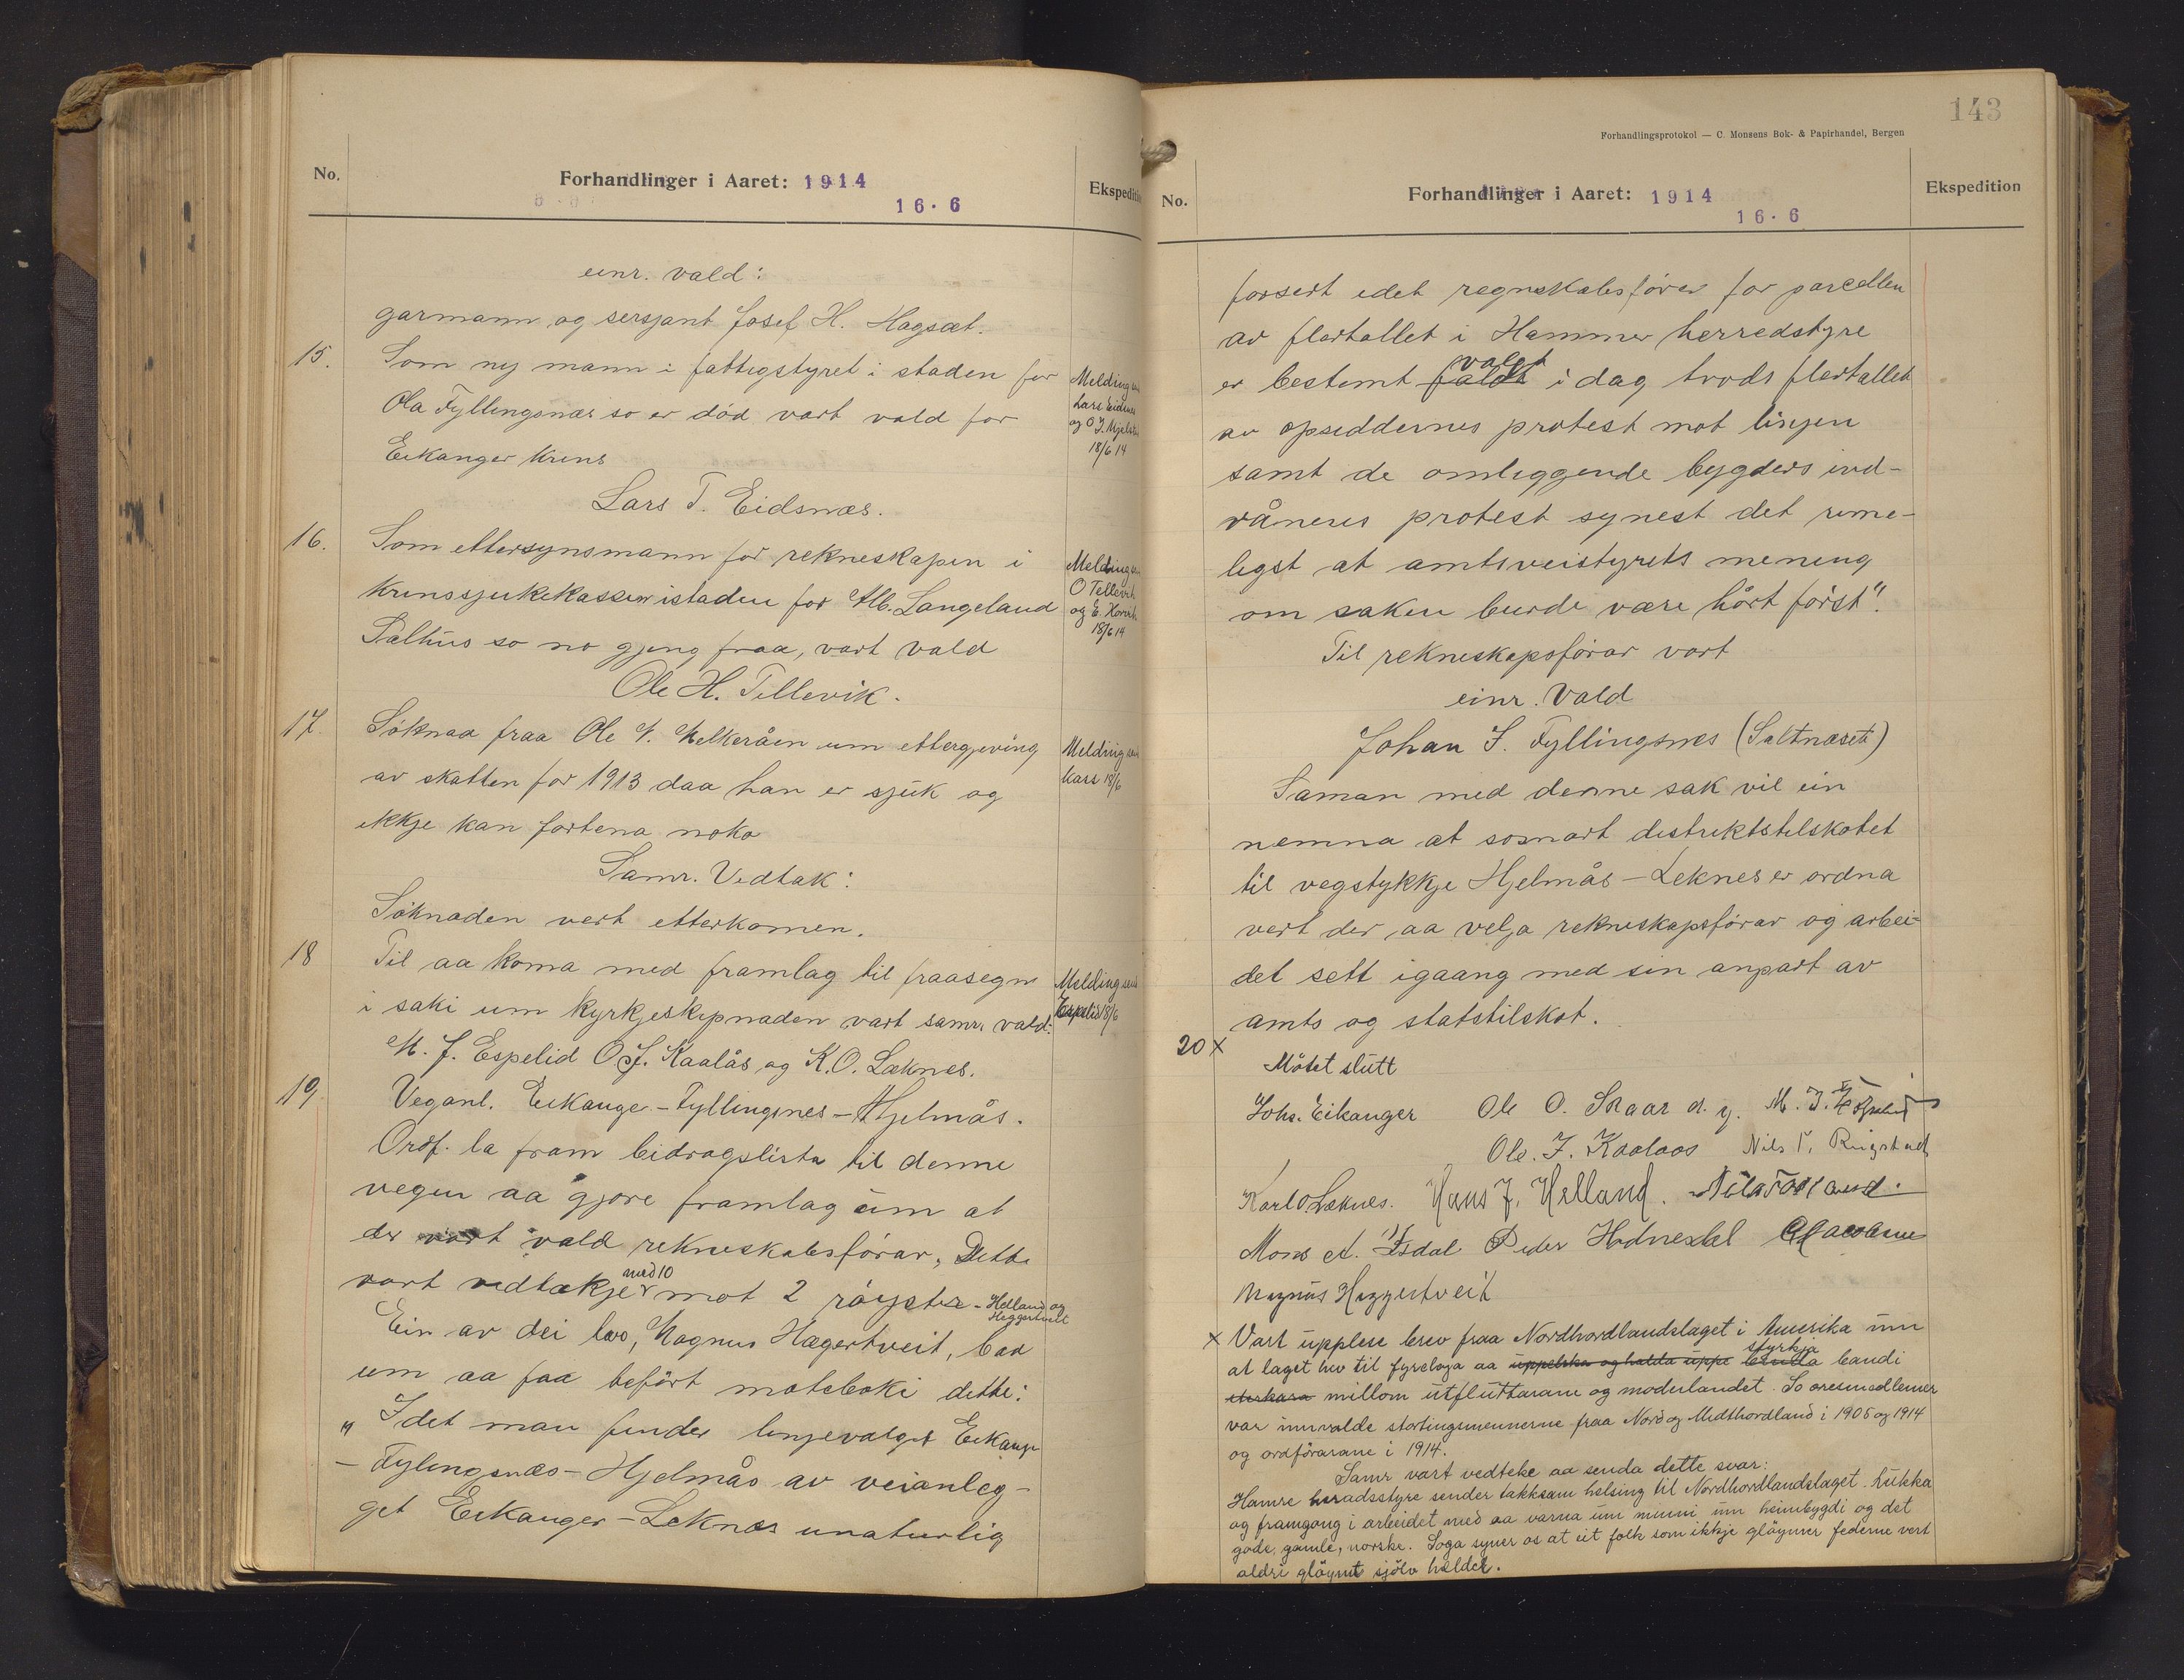 No.
Forhandlinger i Aaret: 1914
16.6
Ekspedition
einr. vald:
garmann og sersjant Josef H. Hagsæt.
15. Som ny mann i fattigstyret i staden for
Ola Fyllingsnæs so er död vart vald for
Eikanger krins
Lars T. Eidsnæs.
Melding
Lars Eidsnes
og O. J. Mjelst
18/6 14
16. Som ettersynsmann for rekneskapen i
krinssjukekassen istaden for Alb. Langeland
Salhus so no gjeng fraa, vart vald
Ole H. Tellevik.
Melding
O Tellevik
og E. Horvik
18/6 14
17. Söknad fraa Ole V. Helkeråen um ettergjeving
av skatten for 1913 daa han er sjuk og
ikkje kan fortena noko
Samr. Vedtak:
Söknaden vert etterkomen.
Melding
kass 18/6
18 Til aa koma med framlag til fraasegn
i saki um kyrkjeskipnaden vart samr. vald:
M. J. Espelid O. J. Kaalås og K. O. Læknes.
Melding send
Espelid 18/6
19. Veganl. Eikange - Fyllingsnes - Hjelmås.
Ordf. la fram bidragslista til denne
vegen aa gjore framlag um at
der vart vald rekneskabsförar, Dette
vart vedtækje med 10 mot 2 röyster - Helland og
Heggertveit
Ein av dei two, Magnus Hægertveit, bad
um aa faa befört moteboki dette:
"Idet man finder linjevalget Eikange
- Fylingsnæs - Hjelmås av veianleg-
get Eikanger - Leknæs unaturlig
143
Forhandlingsprotokol — C. Monsens Bok- & Papirhandel, Bergen
No.
Forhandlinger i Aaret: 1914
16.6
Ekspedition
forsert idet regnskabsförer for parcellen
av flertallet i Hammer herredstyre
er bestemt faldt valgt i dag trods flertallet
av opsiddernes protest mot linjen
samt de omliggende bygders ind-
våneres protest synest det rime-
ligst at amtsveistyrets mening
om saken burde være hört först".
Til rekneskapsförar vart
einr. Vald
Johan S. Fyllingsnes (Saltnæset)
Saman med denne sak vil ein
nemna at sosnart distriktstilskotet
til vegstykkje Hjelmås - Leknes er ordna
vert der aa velja rekneskapsförar og arbei-
det sett igaang med sin anpart av
amts og statstilskot.
20 x
Mötet slutt
Johs. Eikanger Ole O. Skaar d. y. M. J. Espelid
Ole. J. Kaalaas Nils T. Ringstad
Karl O. Læknes. Hans J. Helland.
Mons A. Isdal Peder Hodnesdal
Magnus Heggertveit
x Vart upplese brev fraa Nordhordlandslaget i Amerika um
at laget hev til fyreloga aa uppelska og halda uppe styrkja bandi
sterkara millom utfluttarane og moderlandet. So æresmedlemer
var innvalde stortingsmennerne fraa Nord og Midthordland i 1905 og 1914
og ordförarane i 1914.
Samr vart vedteke aa senda dette svar:
Hamre heradsstyre sender takksam helsing til Nordhordlandslaget. Lukka
og framgong i arbeidet med aa varna um minni um heimbygdi og det
gode, gamle, norske. Soga syner os at eit folk som ikkje glöymer federne vert
aldri glöymt sjölv helder.